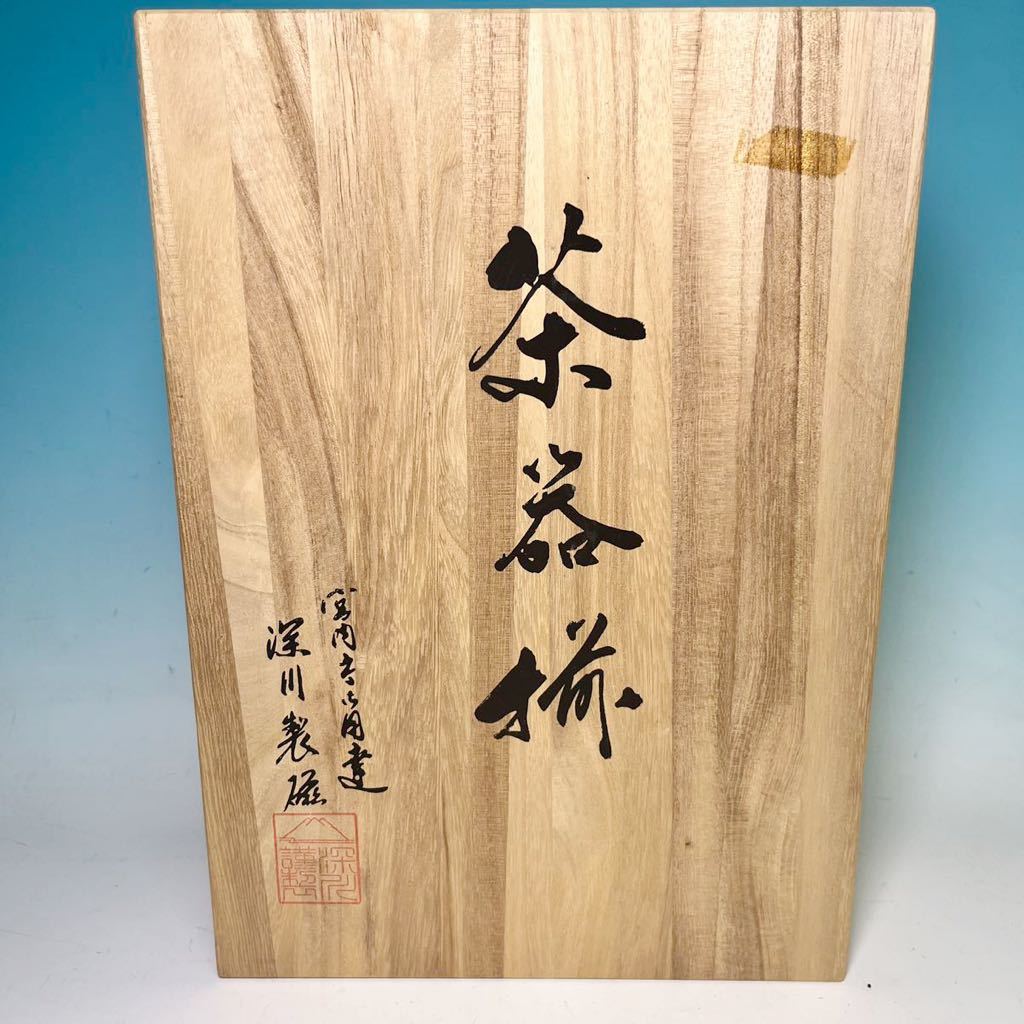 茶器揃
宮内庁御用達
深川製磁
深川
謹製